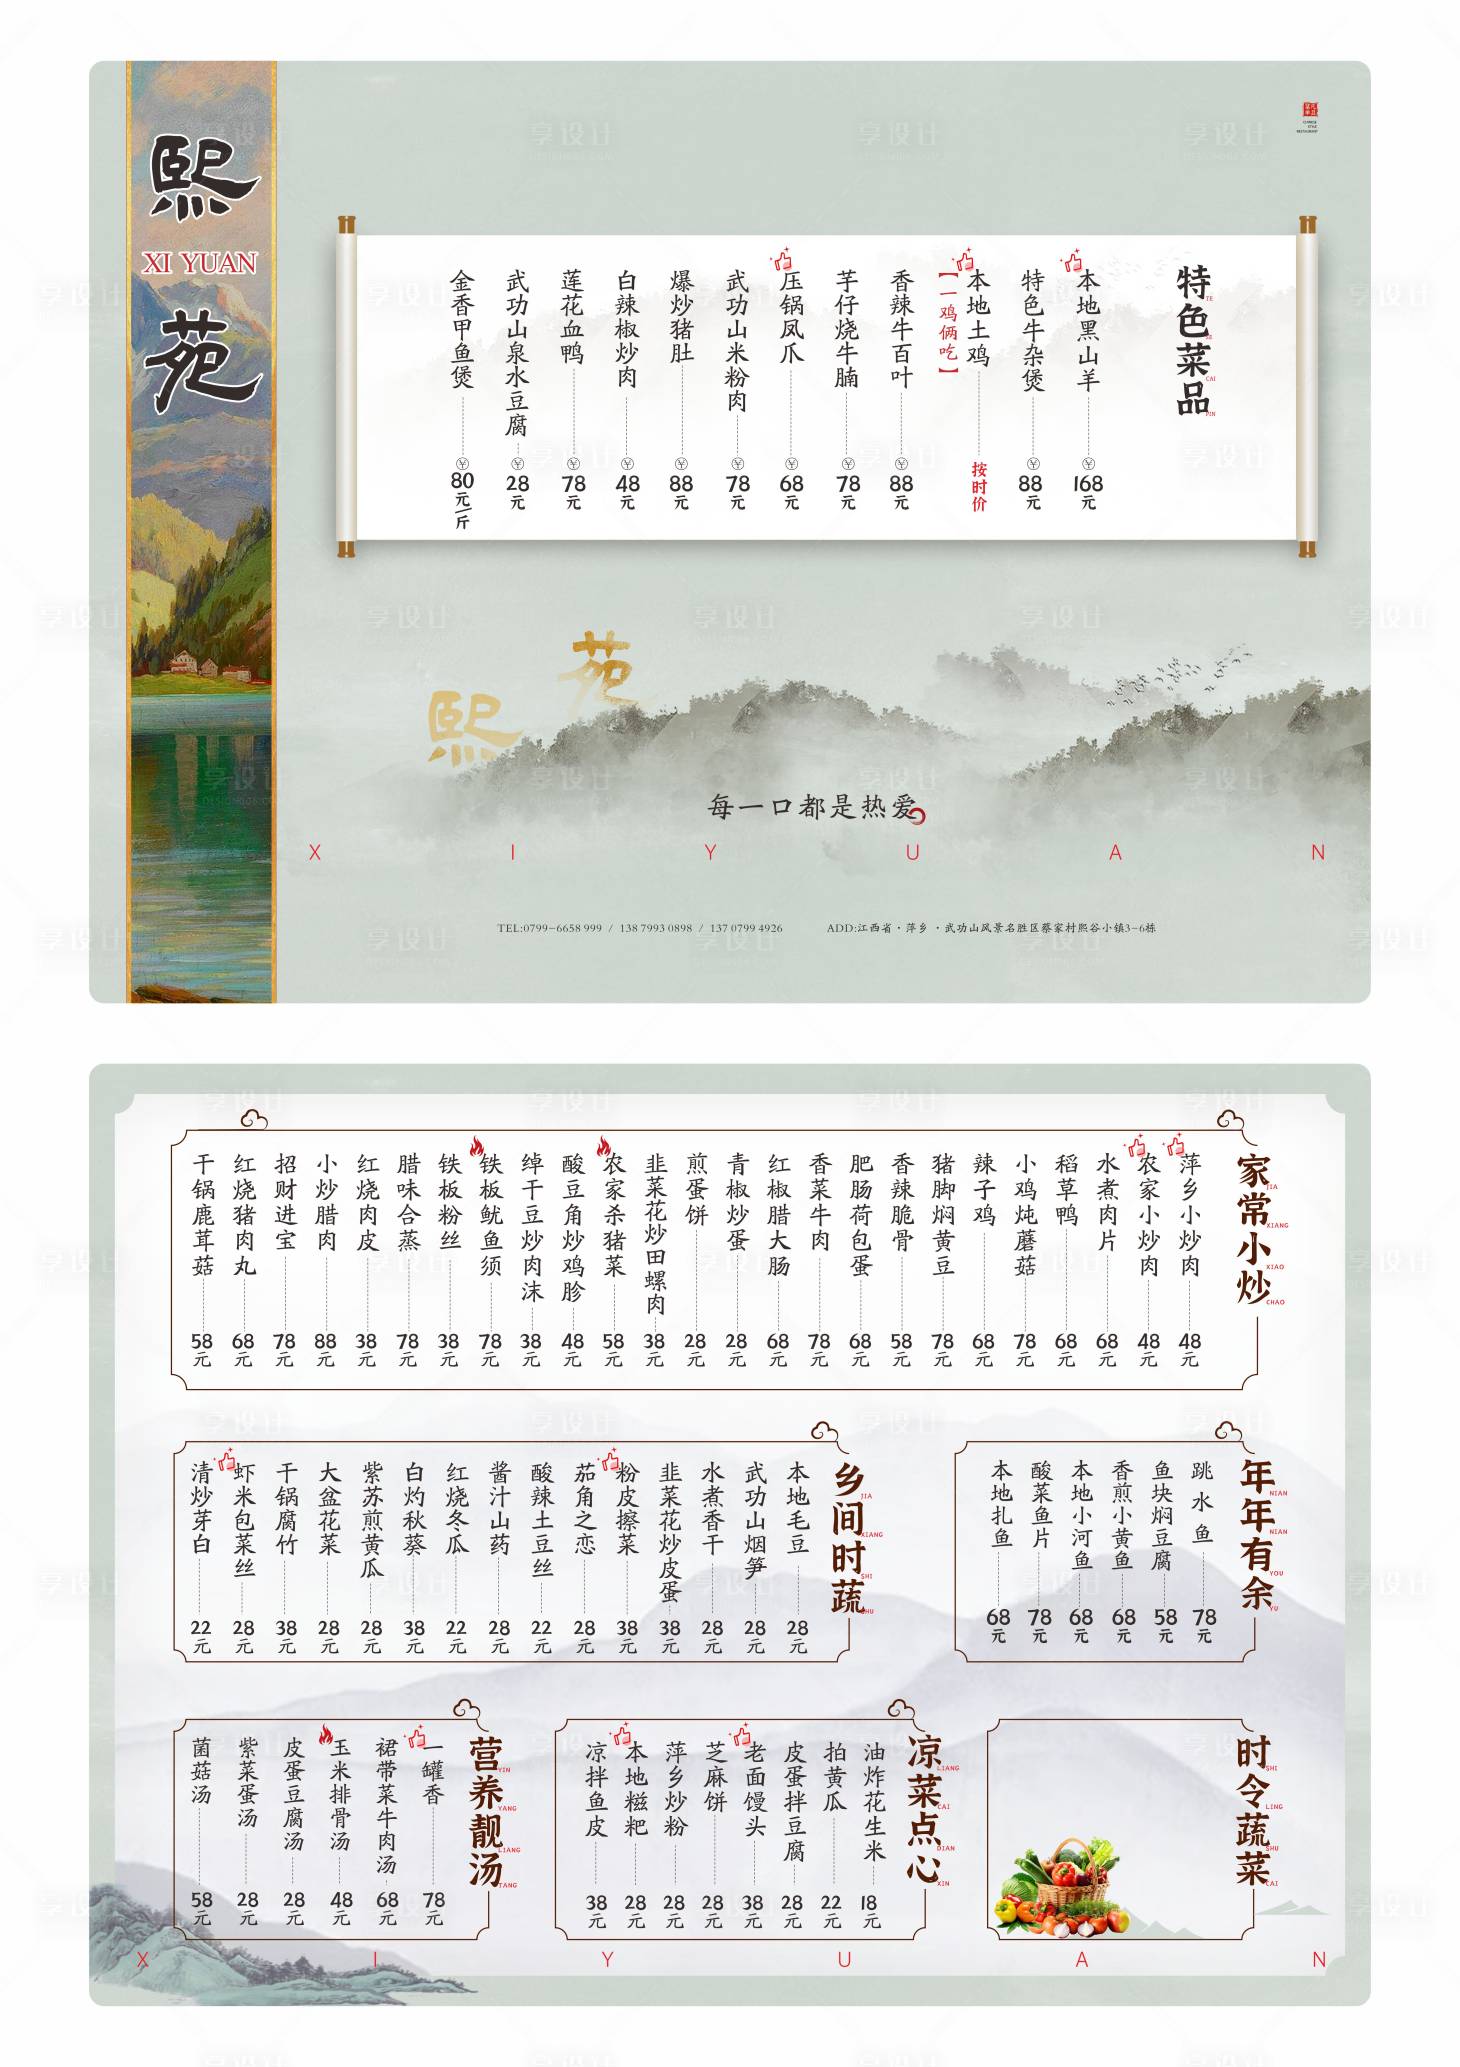 熙
XI YUAN
苑
特色菜品
TE
SE
CAI
PIN
本地黑山羊 168元
特色牛杂煲 88元
本地土鸡 按时价
【一鸡俩吃】
香辣牛百叶 88元
芋仔烧牛腩 78元
压锅凤爪 68元
武功山米粉肉 78元
爆炒猪肚 88元
白辣椒炒肉 48元
莲花血鸭 78元
武功山泉水豆腐 28元
金香甲鱼煲 80元/斤
熙苑
每一口都是热爱
X I Y U A N
TEL:0799-6658 999 / 138 7993 0898 / 137 0799 4926
ADD:江西省·萍乡·武功山风景名胜区蔡家村熙谷小镇3-6栋
家常小炒
JIA
XIANG
XIAO
CHAO
萍乡小炒肉 48元
农家小炒肉 48元
水煮肉片 68元
稻草鸭 68元
小鸡炖蘑菇 78元
辣子鸡 68元
猪脚焖黄豆 78元
香辣脆骨 58元
肥肠荷包蛋 68元
香菜牛肉 78元
红椒腊大肠 68元
青椒炒蛋 28元
煎蛋饼 28元
韭菜花炒田螺肉 38元
农家杀猪菜 58元
酸豆角炒鸡胗 48元
绰干豆炒肉沫 38元
铁板鱿鱼须 78元
铁板粉丝 38元
腊味合蒸 78元
红烧肉皮 38元
小炒腊肉 88元
招财进宝 78元
红烧猪肉丸 68元
干锅鹿茸菇 58元
年年有余
NIAN
NIAN
YOU
YU
跳水鱼 78元
鱼块焖豆腐 58元
香煎小黄鱼 68元
本地小河鱼 68元
酸菜鱼片 78元
本地扎鱼 68元
乡间时蔬
JIA
XIANG
SHI
SHU
本地毛豆 28元
武功山烟笋 28元
水煮香干 28元
韭菜花炒皮蛋 38元
粉皮擦菜 38元
茄角之恋 28元
酸辣土豆丝 22元
酱汁山药 28元
红烧冬瓜 22元
白灼秋葵 38元
紫苏煎黄瓜 28元
大盆花菜 28元
干锅腐竹 38元
虾米包菜丝 28元
清炒芽白 22元
时令蔬菜
SHI
LING
SHU
CAI
凉菜点心
LIANG
CAI
DIAN
XIN
油炸花生米 18元
拍黄瓜 22元
皮蛋拌豆腐 28元
老面馒头 38元
芝麻饼 28元
萍乡炒粉 28元
本地糍粑 28元
凉拌鱼皮 38元
营养靓汤
YIN
YANG
LIANG
TANG
一罐香 78元
裙带菜牛肉汤 68元
玉米排骨汤 48元
皮蛋豆腐汤 28元
紫菜蛋汤 28元
菌菇汤 58元
X I Y U A N